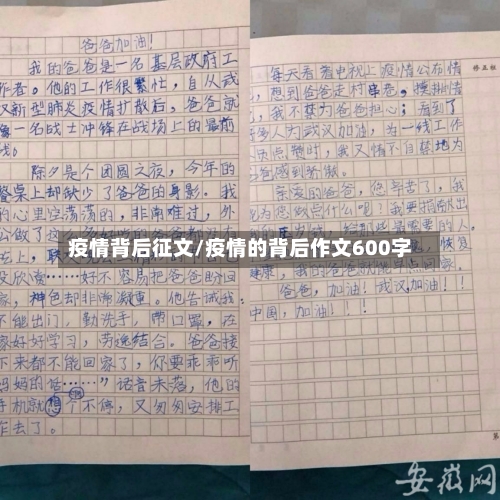 爸爸加油！
我的爸爸是一名基层政府工
作者。他的工作很繁忙，自从武
汉新型肺炎疫情扩散后，爸爸就
像一名战士冲锋在战场上的最前
线。
除夕是个团圆之夜，今年的
餐桌上却缺少了爸爸的身影。我
的心里空荡荡的，非常难过，外
公做了这
在上，取
没欣赏……好不容易把爸爸盼回
家，神色却非常凝重。他告诫我：
不能出门，勤洗手，带口罩，在
家好好学习，劳逸结合。爸爸接
下来都不能回家了，你要乖乖听
妈妈的话……”话音未落，他的
手机就响个不停，又匆匆安排工
作去了。
每天看着电视上疫情公布情
，想到爸爸走村串巷，摸排情
，我不禁为爸爸担心；看到了
多人为武汉加油，为一线工作
员点赞时，我又情不自禁地为
爸感到骄傲。
亲爱的爸爸，您辛苦了，我
为您做点什么呢？我要捐献出
恢复
健康，我的爸爸就能早点回家。
爸爸，加油！武汉加油！
中国，加油！！！
疫情背后征文/疫情的背后作文600字
安徽网